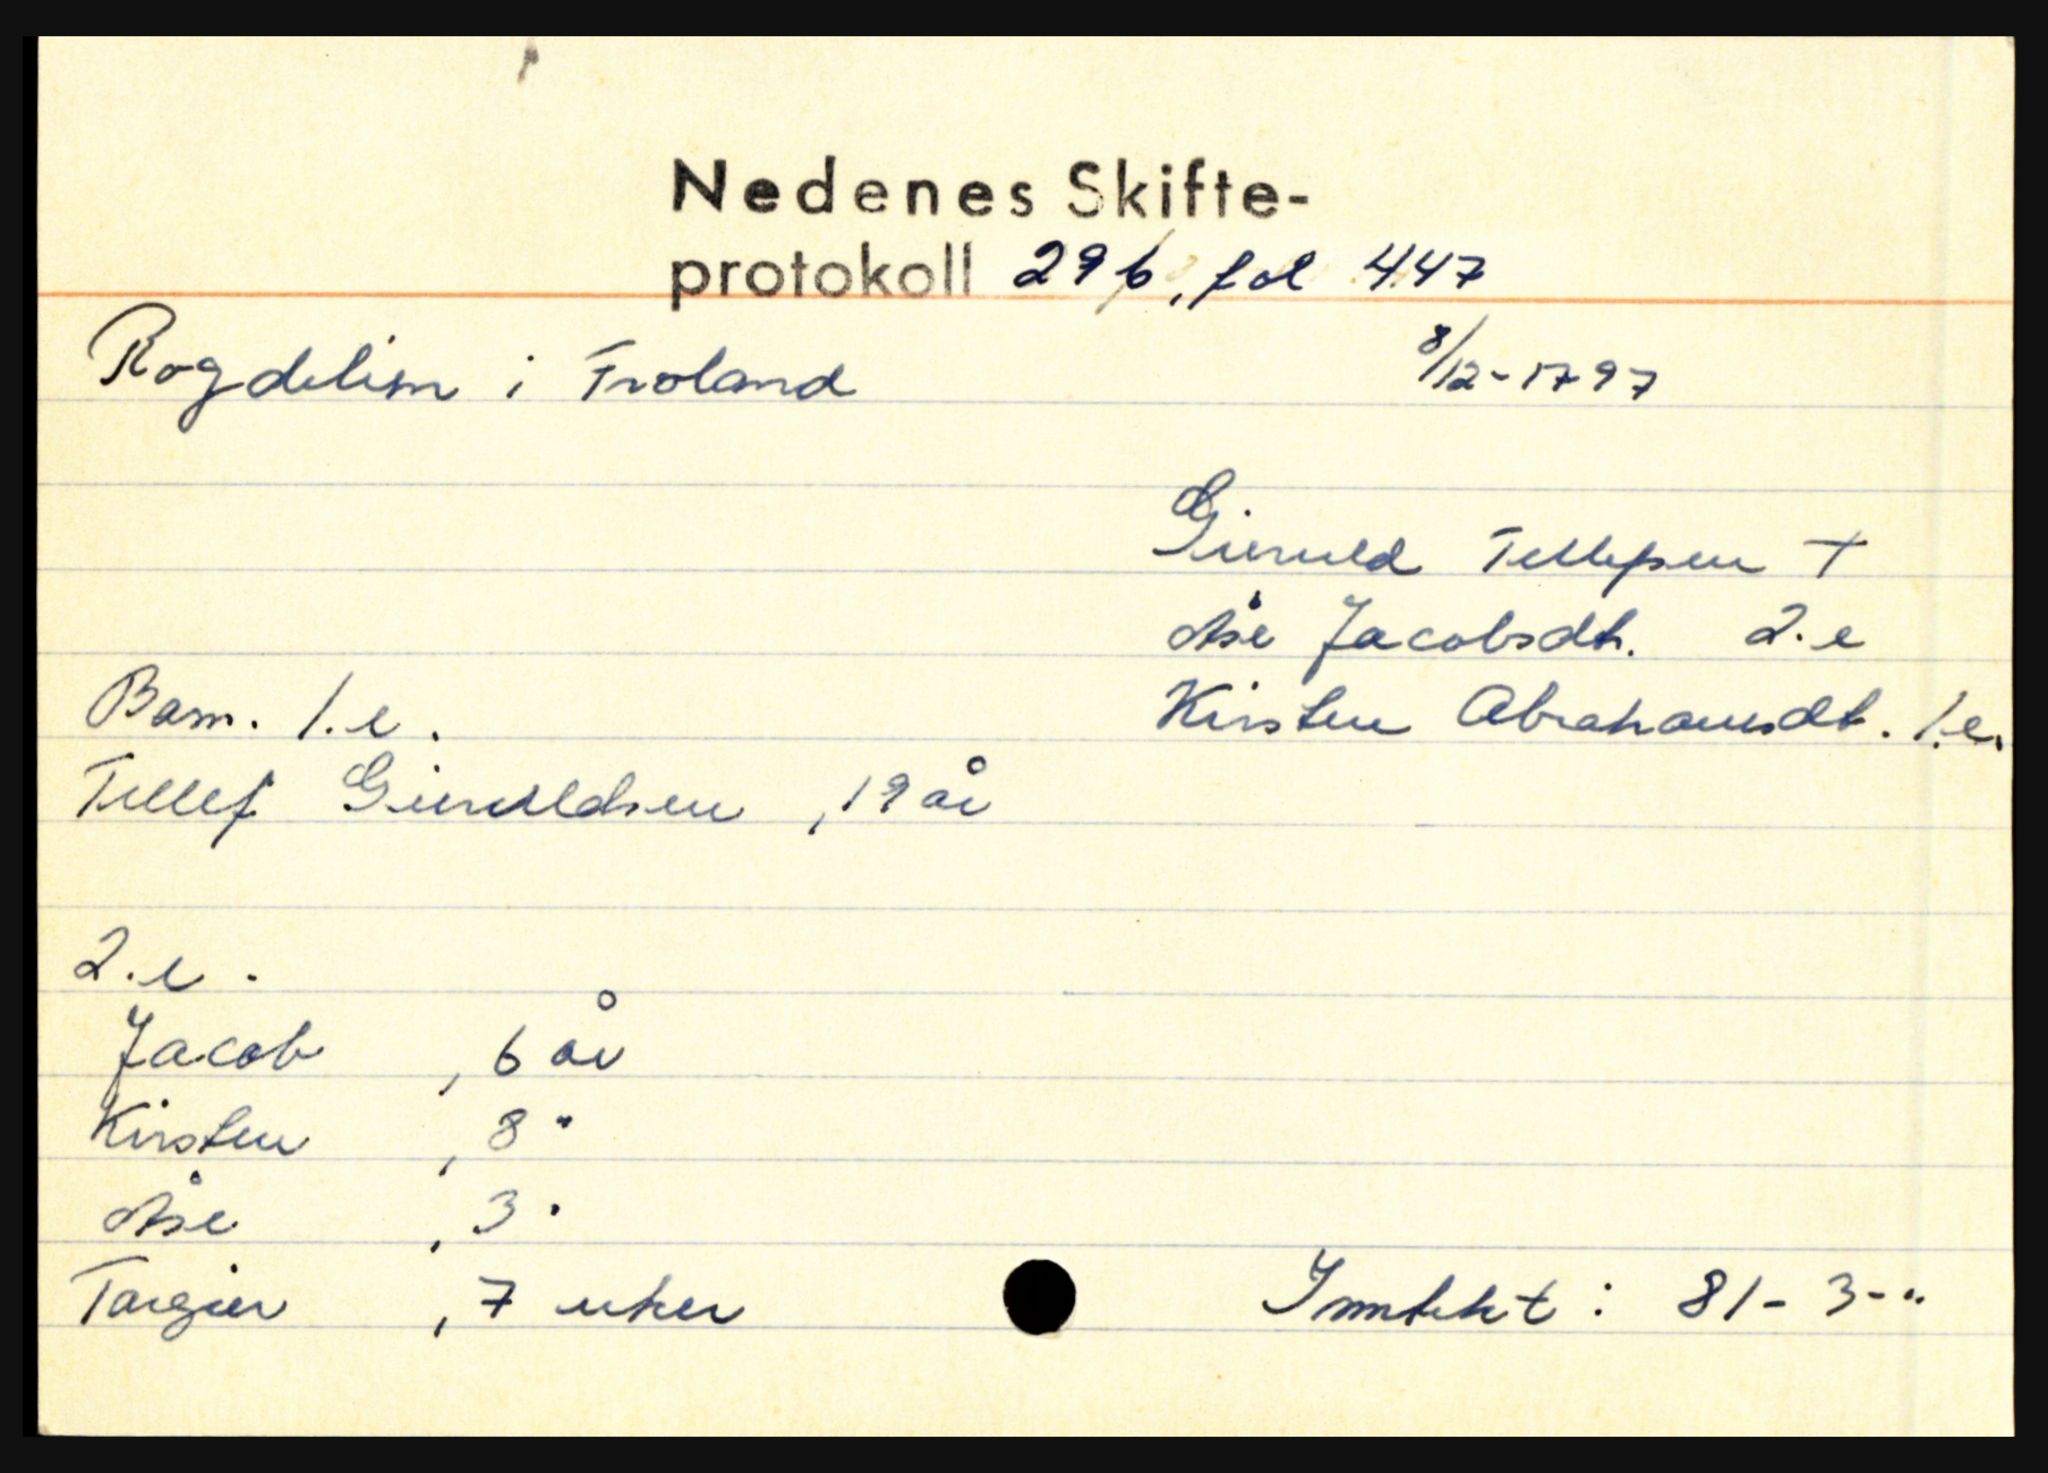 Nedenes Skifte-
protokoll 29b, fol 447
Rogdelien i Froland 8/12-1797
Gieruld Tellefsen +
Åse Jacobsdt. 2.e
Barn. 1.e. Kirsten Abrahamsdt. 1.e.
Tellef Gieruldsen , 19 år
2.e.
Jacob , 6 år
Kirsten , 8 "
Åse , 3 "
Targier , 7 uker Inntekt : 81-3-"